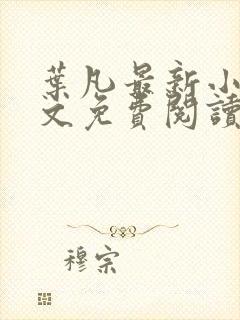 葉凡最新小
文免費閱讀
穆宗